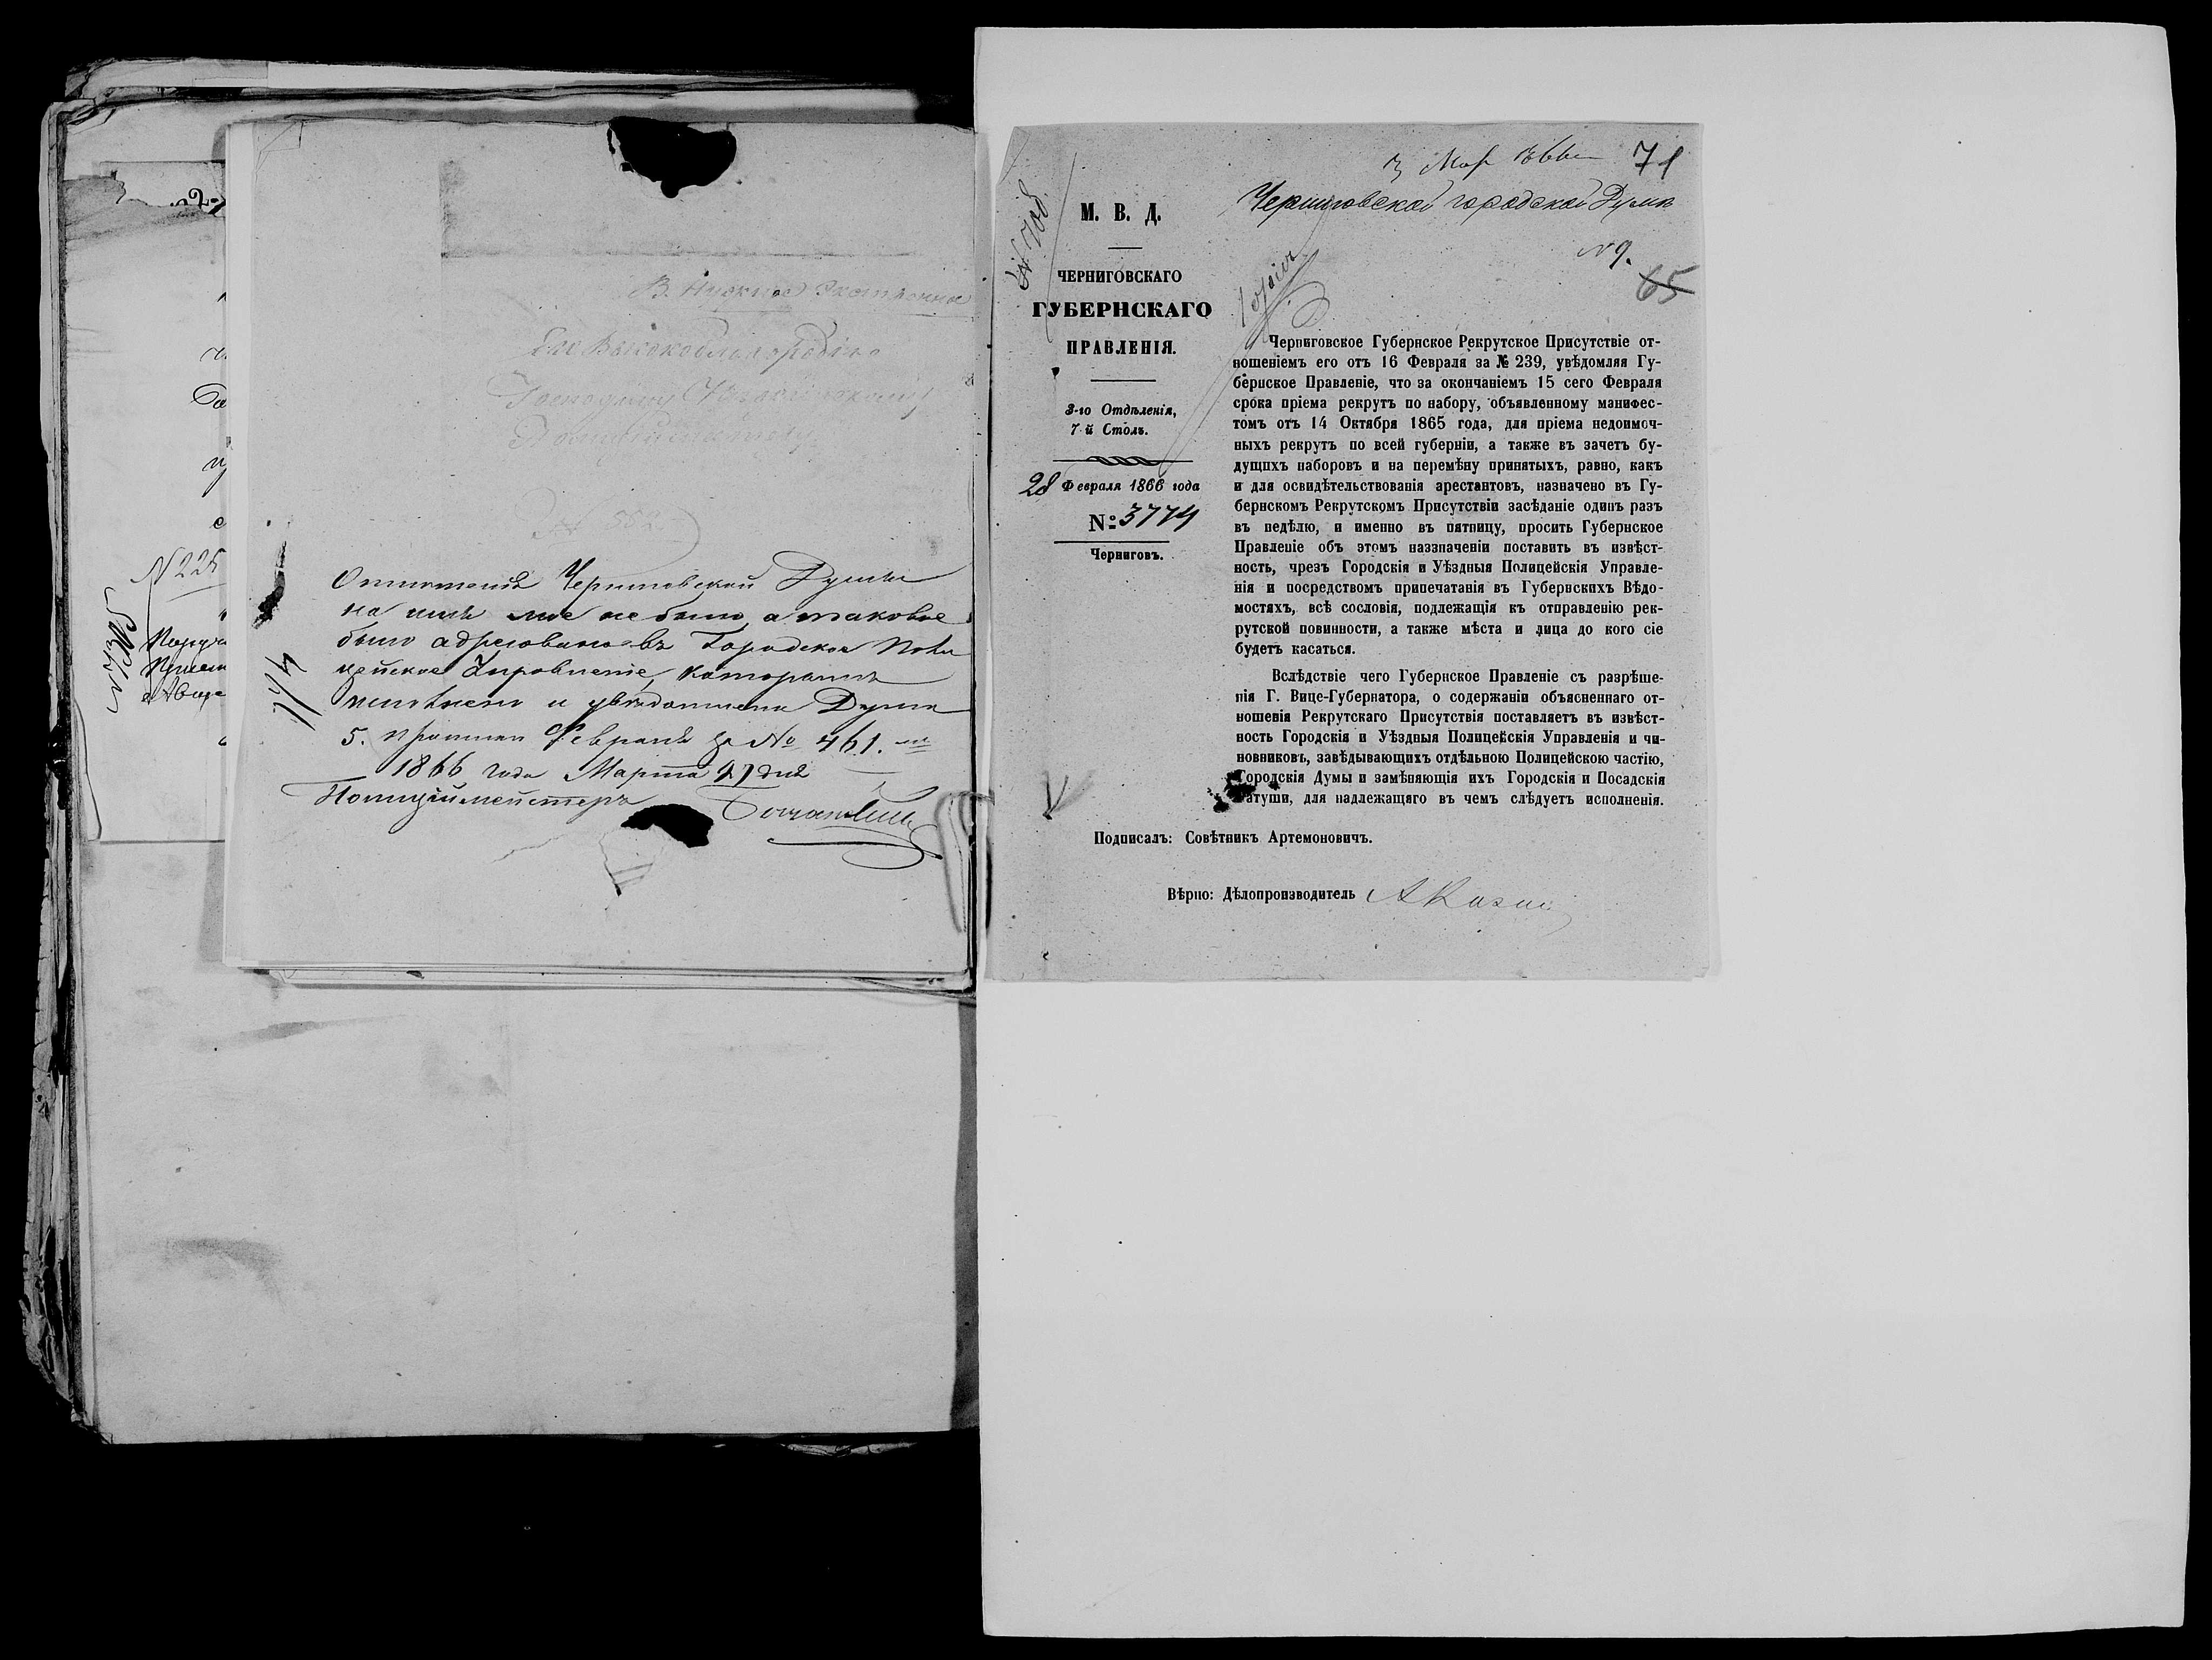 № 225
В. Нужное Экстренное
Его Высокоблагородію
Господину
Отношенія Черниговской Думы
на имя мое не было, а таковое
было адресовано въ Городское Поли
цейское Управленіе, которымъ
и увѣдомлена Дума
5. Февраля за № 461.
1866 года Марта дня
Полиціймейстеръ
3 Мар 1866
71
Черниговской городской Думѣ
№ 9.
65
М. В. Д.
ЧЕРНИГОВСКАГО
ГУБЕРНСКАГО
ПРАВЛЕНІЯ.
3-го Отдѣленія,
7-й Столъ.
28 Февраля 1866 года
№ 3774
Черниговъ.
Черниговское Губернское Рекрутское Присутствіе от-
ношеніемъ его отъ 16 Февраля за № 239, увѣдомляя Гу-
бернское Правленіе, что за окончаніемъ 15 сего Февраля
срока пріема рекрутъ по набору, объявленному манифес-
томъ отъ 14 Октября 1865 года, для пріема недоимоч-
ныхъ рекрутъ по всей губерніи, а также въ зачетъ бу-
дущихъ наборовъ и на перемѣну принятыхъ, равно, какъ
и для освидѣтельствованія арестантовъ, назначено въ Гу-
бернскомъ Рекрутскомъ Присутствіи засѣданіе одинъ разъ
въ недѣлю, и именно въ пятницу, проситъ Губернское
Правленіе объ этомъ наззначеніи поставить въ извѣст-
ность, чрезъ Городскія и Уѣздныя Полицейскія Управле-
нія и посредствомъ припечатанія въ Губернскихъ Вѣдо-
мостяхъ, всѣ сословія, подлежащія къ отправленію рек-
рутской повинности, а также мѣста и лица до кого сіе
будетъ касаться.
Вслѣдствіе чего Губернское Правленіе съ разрѣше-
нія Г. Вице-Губернатора, о содержаніи объясненнаго от-
ношенія Рекрутскаго Присутствія поставляетъ въ извѣст-
ность Городскія и Уѣздныя Полицейскія Управленія и чи-
новниковъ, завѣдывающихъ отдѣльною Полицейскою частію,
Городскія Думы и замѣняющія ихъ Городскія и Посадскія
Ратуши, для надлежащяго въ чемъ слѣдуетъ исполненія.
Подписалъ: Совѣтникъ Артемоновичъ.
Вѣрно: Дѣлопроизводитель